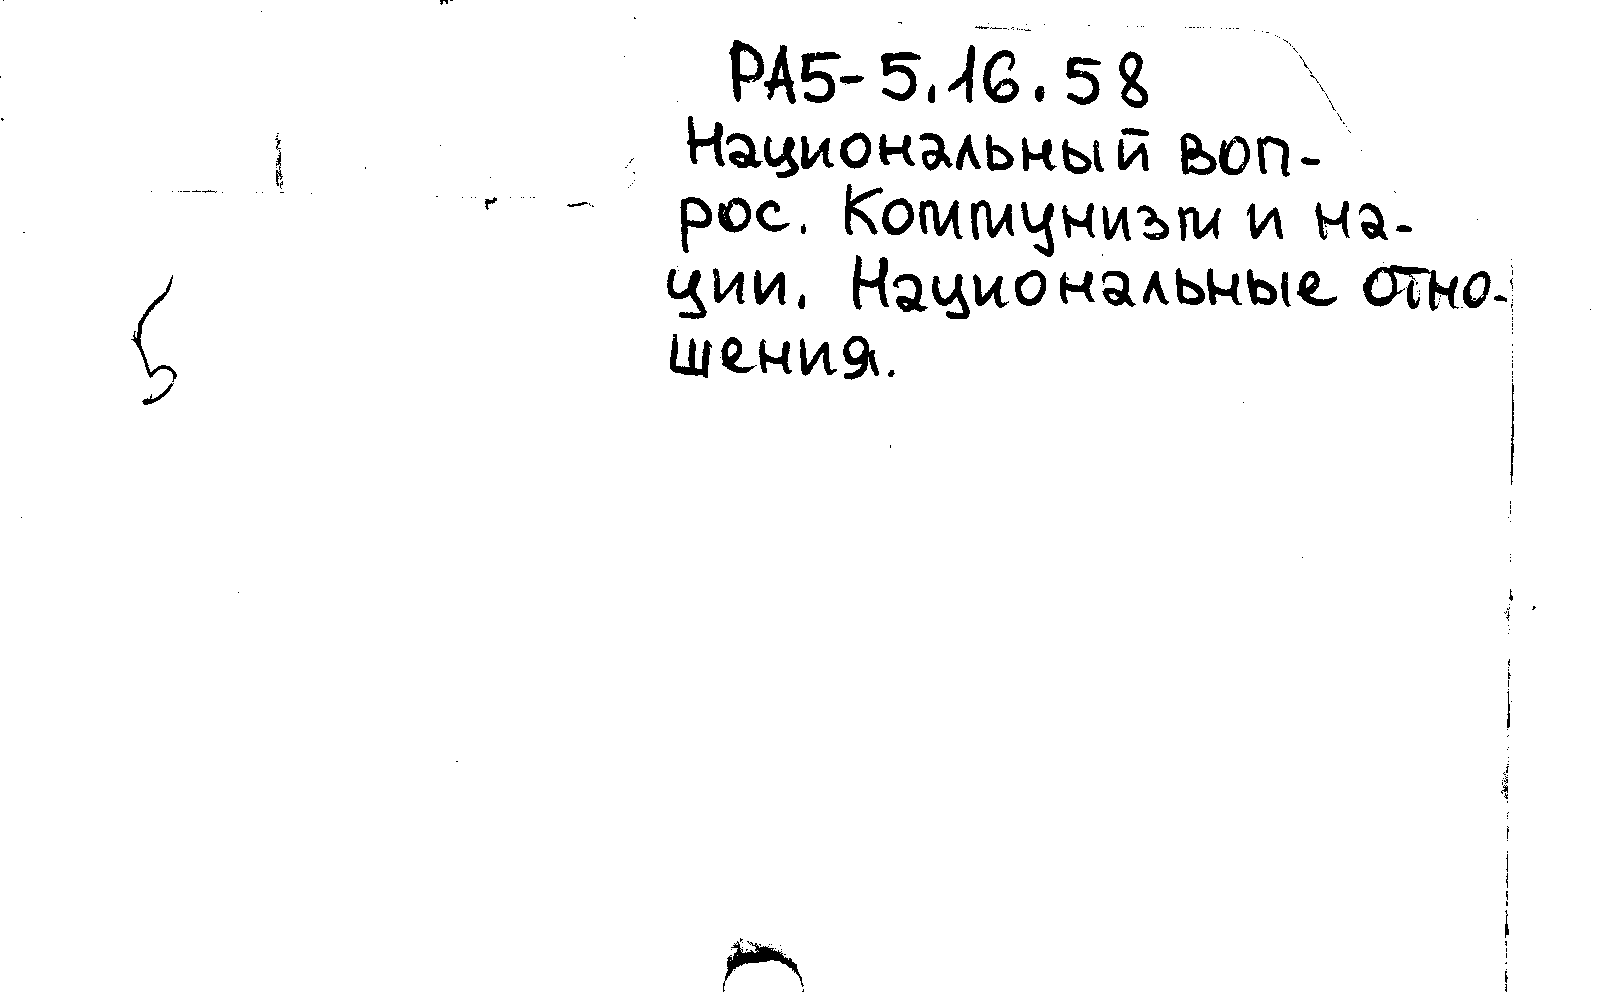 РА5-5.16.58
Национальный воп-
рос. Коммунизм и на-
ции. Национальные отно-
шения.